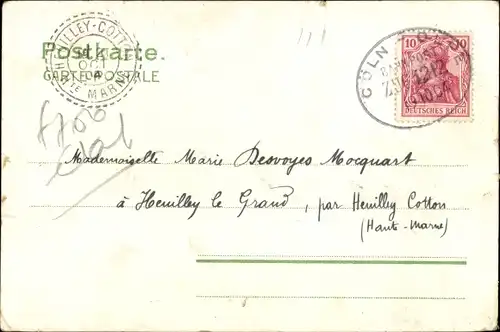 Postkarte.
CARTE POSTALE
HEUILLEY-COTTON
OCT
04
Hte MARNE
CÖLN
BAHNPOST
ZUG
10 10
DEUTSCHES REICH
Mademoiselle Marie Desvoyes Mocquart
à Heuilley le Grand, par Heuilley Cotton
(Haute-Marne)